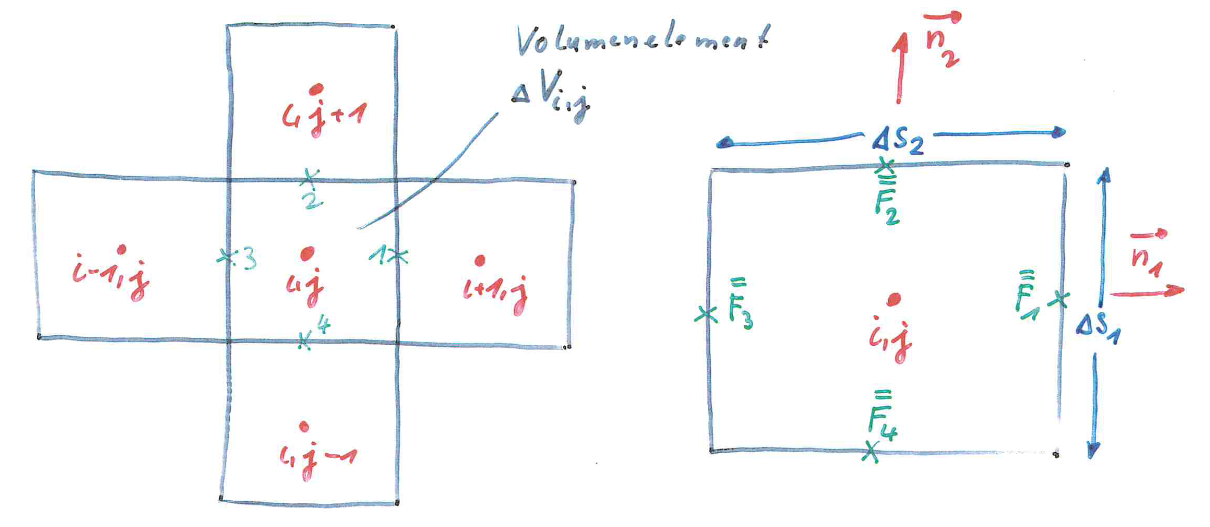 Volumenelement
ΔV i,j
i,j+1
2
i-1,j
3
i,j
1
i+1,j
4
i,j-1
n⃗₂
ΔS₂
F̿₂
n⃗₁
F̿₃
F̿₁
ΔS₁
i,j
F̿₄